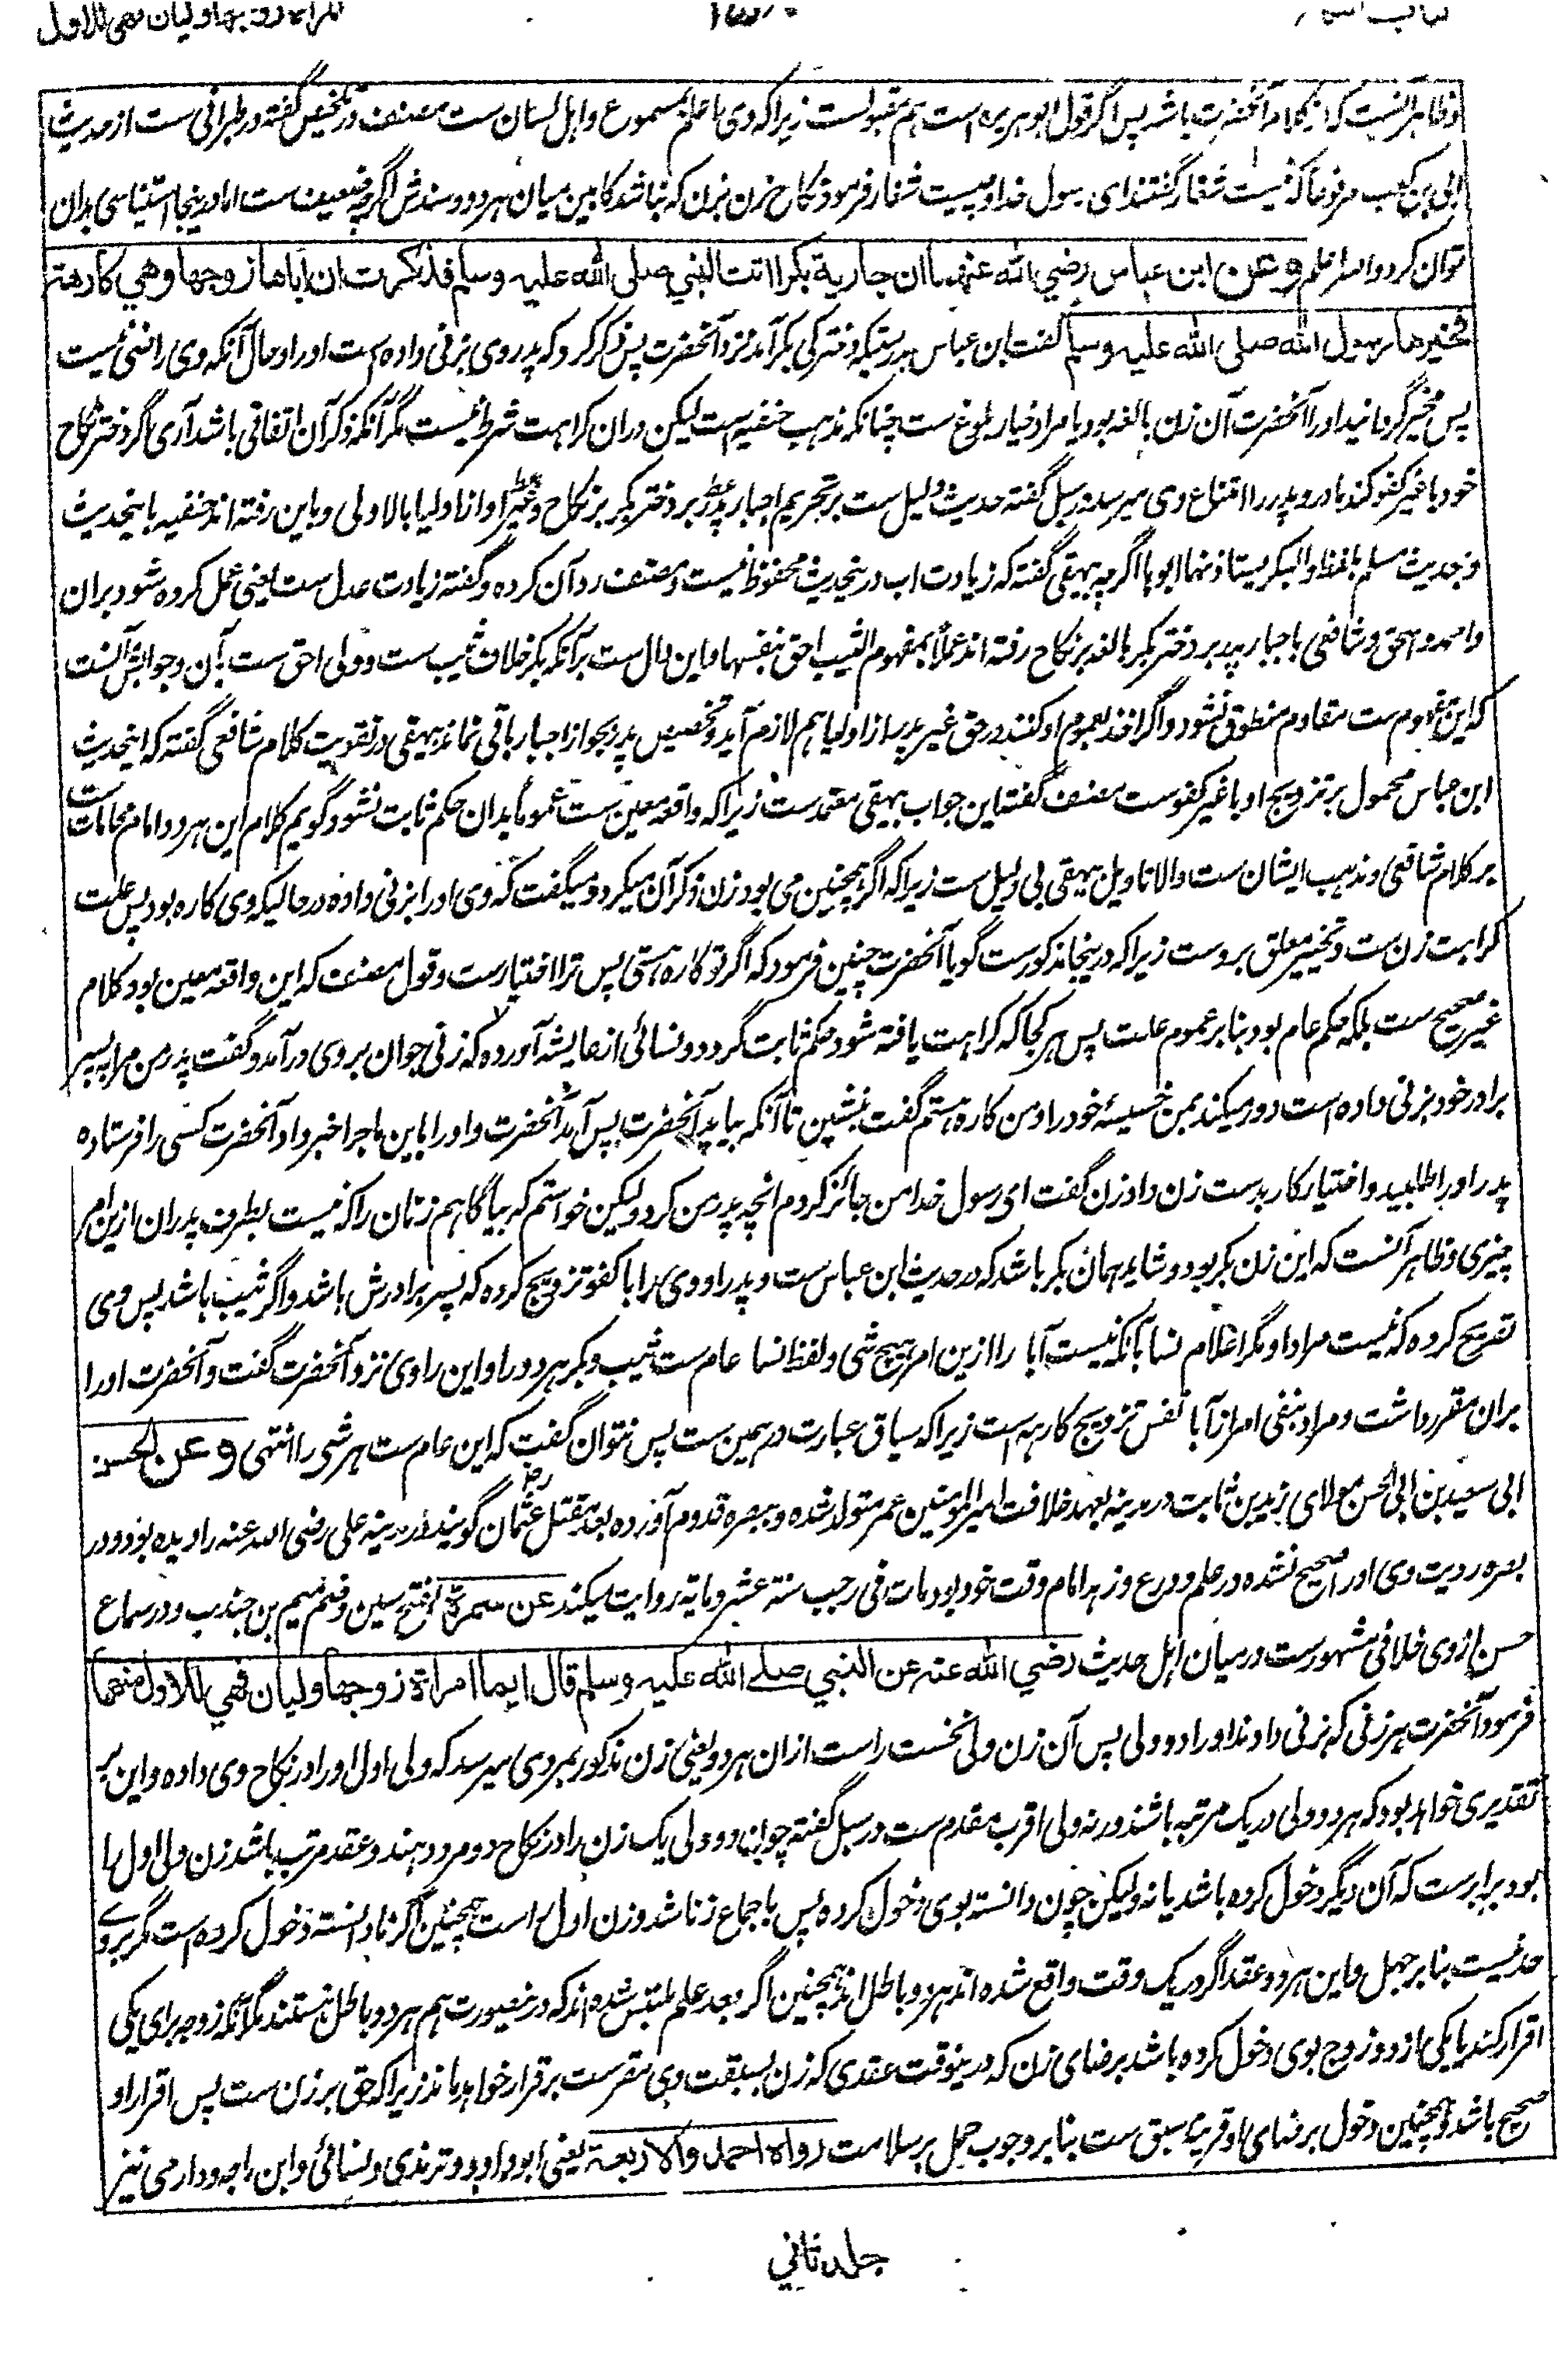 وظاهر آنست که اینکلام آنحضرت باشد پس اگر قول ابوهریره است هم مقبولست زیرا که وی اعلم بمسموع و اهل لسان ست مصنف در تلخیص گفته در طبرانی ست از حدیث
ابی بن کعب مرفوعا که نیست شغار گفتند ای رسول خدا و چیست شغار فرمود نکاح زن بزن که نباشد کابین میان هر دو و سندش اگرچه ضعیف ست اما درینجا استیناسی بدان
توان کرد و الله اعلم وعن ابن عباس رضي الله عنهما ان جارية بكرا اتت النبي صلى الله عليه وسلم فذكرت ان اباها زوجها وهي كارهة
فخيرها رسول الله صلى الله عليه وسلم گفت ابن عباس بدرستیکه دخترکی بکر آمد نزد آنحضرت پس ذکر کرد که پدر وی بزنی داده است او را و حال آنکه وی راضی نیست
پس مخیر گردانید او را آنحضرت آن زن بالغه بود یا مراد خیار بلوغ ست چنانکه مذهب حنفیه است لیکن دران کراهت شرط نیست مگر آنکه ذکر آن اتفاقی باشد آری اگر دختر نکاح
خود با غیر کفو کند مادر و پدر را امتناع وی میرسد در سبل گفته حدیث دلیل ست بر تحریم اجبار پدر بر دختر بکر بر نکاح و غیر او از اولیا بالاولی و باین رفته اند حنفیه باینحدیث
و بحدیث مسلم بلفظ والبکر یستاذنها ابوها اگرچه بیهقی گفته که زیادت اب درینحدیث محفوظ نیست و مصنف رد آن کرده و گفته زیادت عدل ست یعنی عمل کرده شود بران
و احمد و اسحق و شافعی باجبار پدر بر دختر بکر بالغه بر نکاح رفته اند عملاً بمفهوم الثیب احق بنفسها و این دال ست بر آنکه بکر خلاف ثیب ست و ولی احق ست بآن و جوابش آنست
که این مفهوم ست مقاوم منطوق نشود و اگر اخذ بعموم او کنند در حق غیر پدر از اولیا هم لازم آید و تخصیص پدر بجواز اجبار باقی نماند بیهقی در تقویت کلام شافعی گفته که اینحدیث
ابن عباس محمول بر تزویج او با غیر کفوست مصنف گفته این جواب بیهقی معتمد ست زیرا که واقعه معین ست عموماً بدان حکم ثابت نشود گویم کلام این هر دو امام محامات ست
بر کلام شافعی و مذهب ایشان ست والا تاویل بیهقی بی دلیل ست زیرا که اگر همچنین می بود زن ذکر آن میکرد و میگفت که وی او را بزنی داده در حالیکه وی کاره بود پس علت
کراهت زن ست و تخییر معلق بروست زیرا که درینجا مذکورست گویا آنحضرت چنین فرمود که اگر تو کاره هستی پس ترا اختیارست و قول مصنف که این واقعه معین بود کلام
غیر صحیح ست بلکه حکم عام بود بنا بر عموم علت پس هر کجا که کراهت یافته شود حکم ثابت گردد و نسائی از عایشه آورده که زنی جوان بر وی درآمد و گفت پدر من مرا بپسر
برادر خود بزنی داده است دور میکند بمن خسیسهٔ خود را و من کاره هستم گفت بنشین تا آنکه بیاید آنحضرت پس آمد آنحضرت و او را باین ماجرا خبر داد آنحضرت کسی را فرستاده
پدر او را طلبید و اختیار کار بدست زن داد زن گفت ای رسول خدا من جائز کردم انچه پدر من کرد ولیکن خواستم که بیاگاهم زنان را که نیست بطرف پدران ازین امر
چیزی و ظاهر آنست که این زن بکر بود و شاید همان بکر باشد که در حدیث ابن عباس ست و پدر او وی را با کفو تزویج کرده که پسر برادرش باشد و اگر ثیب باشد پس وی
تصریح کرده که نیست مراد او مگر اعلام نسا بآنکه نیست آبا را ازین امر هیچ شی و لفظ نسا عام ست ثیب و بکر هر دو را و این را وی نزد آنحضرت گفت و آنحضرت او را
بران مقرر داشت و مراد بنفی امر از آبا نفس تزویج کارهه است زیرا که سیاق عبارت در همین ست پس نتوان گفت که این عام ست هر شی را انتهی وعن الحسن
ابی سعید بن ابی الحسن مولای زید بن ثابت در مدینه بعهد خلافت امیرالمومنین عمر متولد شده و ببصره قدوم آورده بعد مقتل عثمان رض گویند در مدینه علی رضی الله عنه را دیده بود و در
بصره رویت وی او را صحیح نشده در علم و ورع و زهد امام وقت خود بود مات فی رجب سنة عشر و مایة روایت میکند عن سمرة بفتح سین و ضم میم بن جندب و در سماع
حسن از وی خلافی مشهورست درمیان اهل حدیث رضي الله عنه عن النبي صلى الله عليه وسلم قال ايما امراة زوجها وليان فهي للاول منهما
فرمود آنحضرت هر زنی که بزنی دادند او را دو ولی پس آن زن ولی نخست راست ازان هر دو یعنی زن مذکور بمردی میرسد که ولی اول او را در نکاح وی داده و این بر
تقدیری خواهد بود که هر دو ولی در یک مرتبه باشند ورنه ولی اقرب مقدم ست در سبل گفته چون دو ولی یک زن را در نکاح دو مرد دهند و عقد مرتب باشد زن ولی اول را
بود برابرست که آن دیگر دخول کرده باشد یا نه ولیکن چون دانسته بوی دخول کرده پس باجماع زنا شد و زن اول راست همچنین اگر نادانسته دخول کرده است مگر بروے
حد نیست بنا بر جهل و این هر دو عقد اگر در یک وقت واقع شده اند هر دو باطل اند همچنین اگر بعد علم ملتبس شده اند که درینصورت هم هر دو باطل هستند مگر آنکه زوجه برای یکی
اقرار کند یا یکی از دو زوج بوی دخول کرده باشد برضای زن که درینوقت عقدی که زن بسبقت وی مقرست برقرار خواهد ماند زیرا که حق بر زن ست پس اقرار او
صحیح باشد و همچنین دخول برضای او قرینه سبق ست بنا بر وجوب حمل بر سلامت رواه احمد والاربعة یعنی ابو داود و ترمذی و نسائی و ابن ماجه و دارمی نیز
جلد ثاني